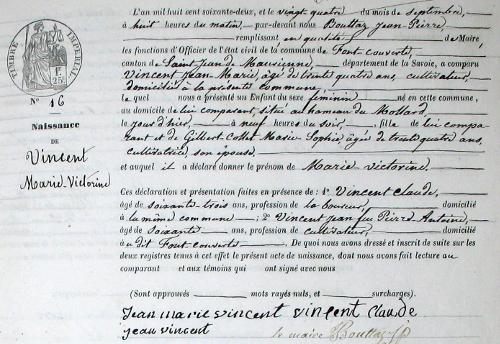 TIMBRE IMPÉRIAL
N° 16
Naissance
DE
Vincent
Marie-Victorine
L'an mil huit cent soixante-deux, et le vingt quatre du mois de septembre,
à huit heures du matin, par-devant nous Bouttaz Jean-Pierre
remplissant en qualité de Maire,
les fonctions d'Officier de l'état civil de la commune de Font couverte,
canton de Saint Jean de Maurienne, département de la Savoie, a comparu
Vincent Jean Marie, âgé de trente quatre ans, cultivateur,
domicilié à la présente commune,
lequel nous a présenté un Enfant du sexe féminin né en cette commune,
au domicile de lui comparant, situé au hameau du Mollard
le jour d'hier, à neuf heures du soir, fille de lui compa-
rant et de Gilbert-Collet Marie Sophie âgée de trente quatre ans,
cultivatrice, son épouse,
et auquel il a déclaré donner le prénom de Marie-Victorine
Ces déclaration et présentation faites en présence de : 1° Vincent Claude,
âgé de soixante-trois ans, profession de laboureur, domicilié
à la même commune — 2° Vincent Jean feu Pierre Antoine,
âgé de soixante ans, profession de cultivateur, domicilié
au dit Font couverte. De quoi nous avons dressé et inscrit de suite sur les
deux registres tenus à cet effet le présent acte de naissance, dont nous avons fait lecture au
comparant et aux témoins qui ont signé avec nous
(Sont approuvés mots rayés nuls, et surcharges).
Jean marie vincent vincent claude
jean vincent le maire Bouttaz